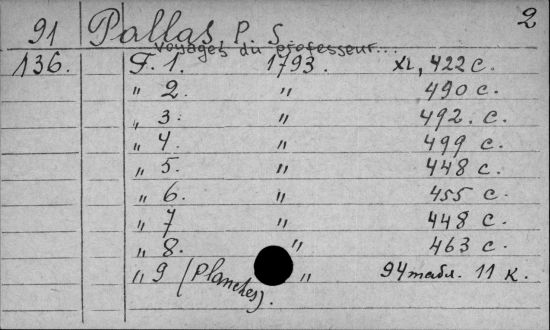 2
91 Pallas, P. S.
Voyages du professeur...
136. T. 1. 1793. XL, 422 c.
" 2. " 490 c.
" 3. " 492. c.
" 4. " 499 c.
" 5. " 448 c.
" 6. " 455 c.
" 7 " 448 c.
" 8. " 463 c.
" 9 (Planches). " 94 табл. 11 к.